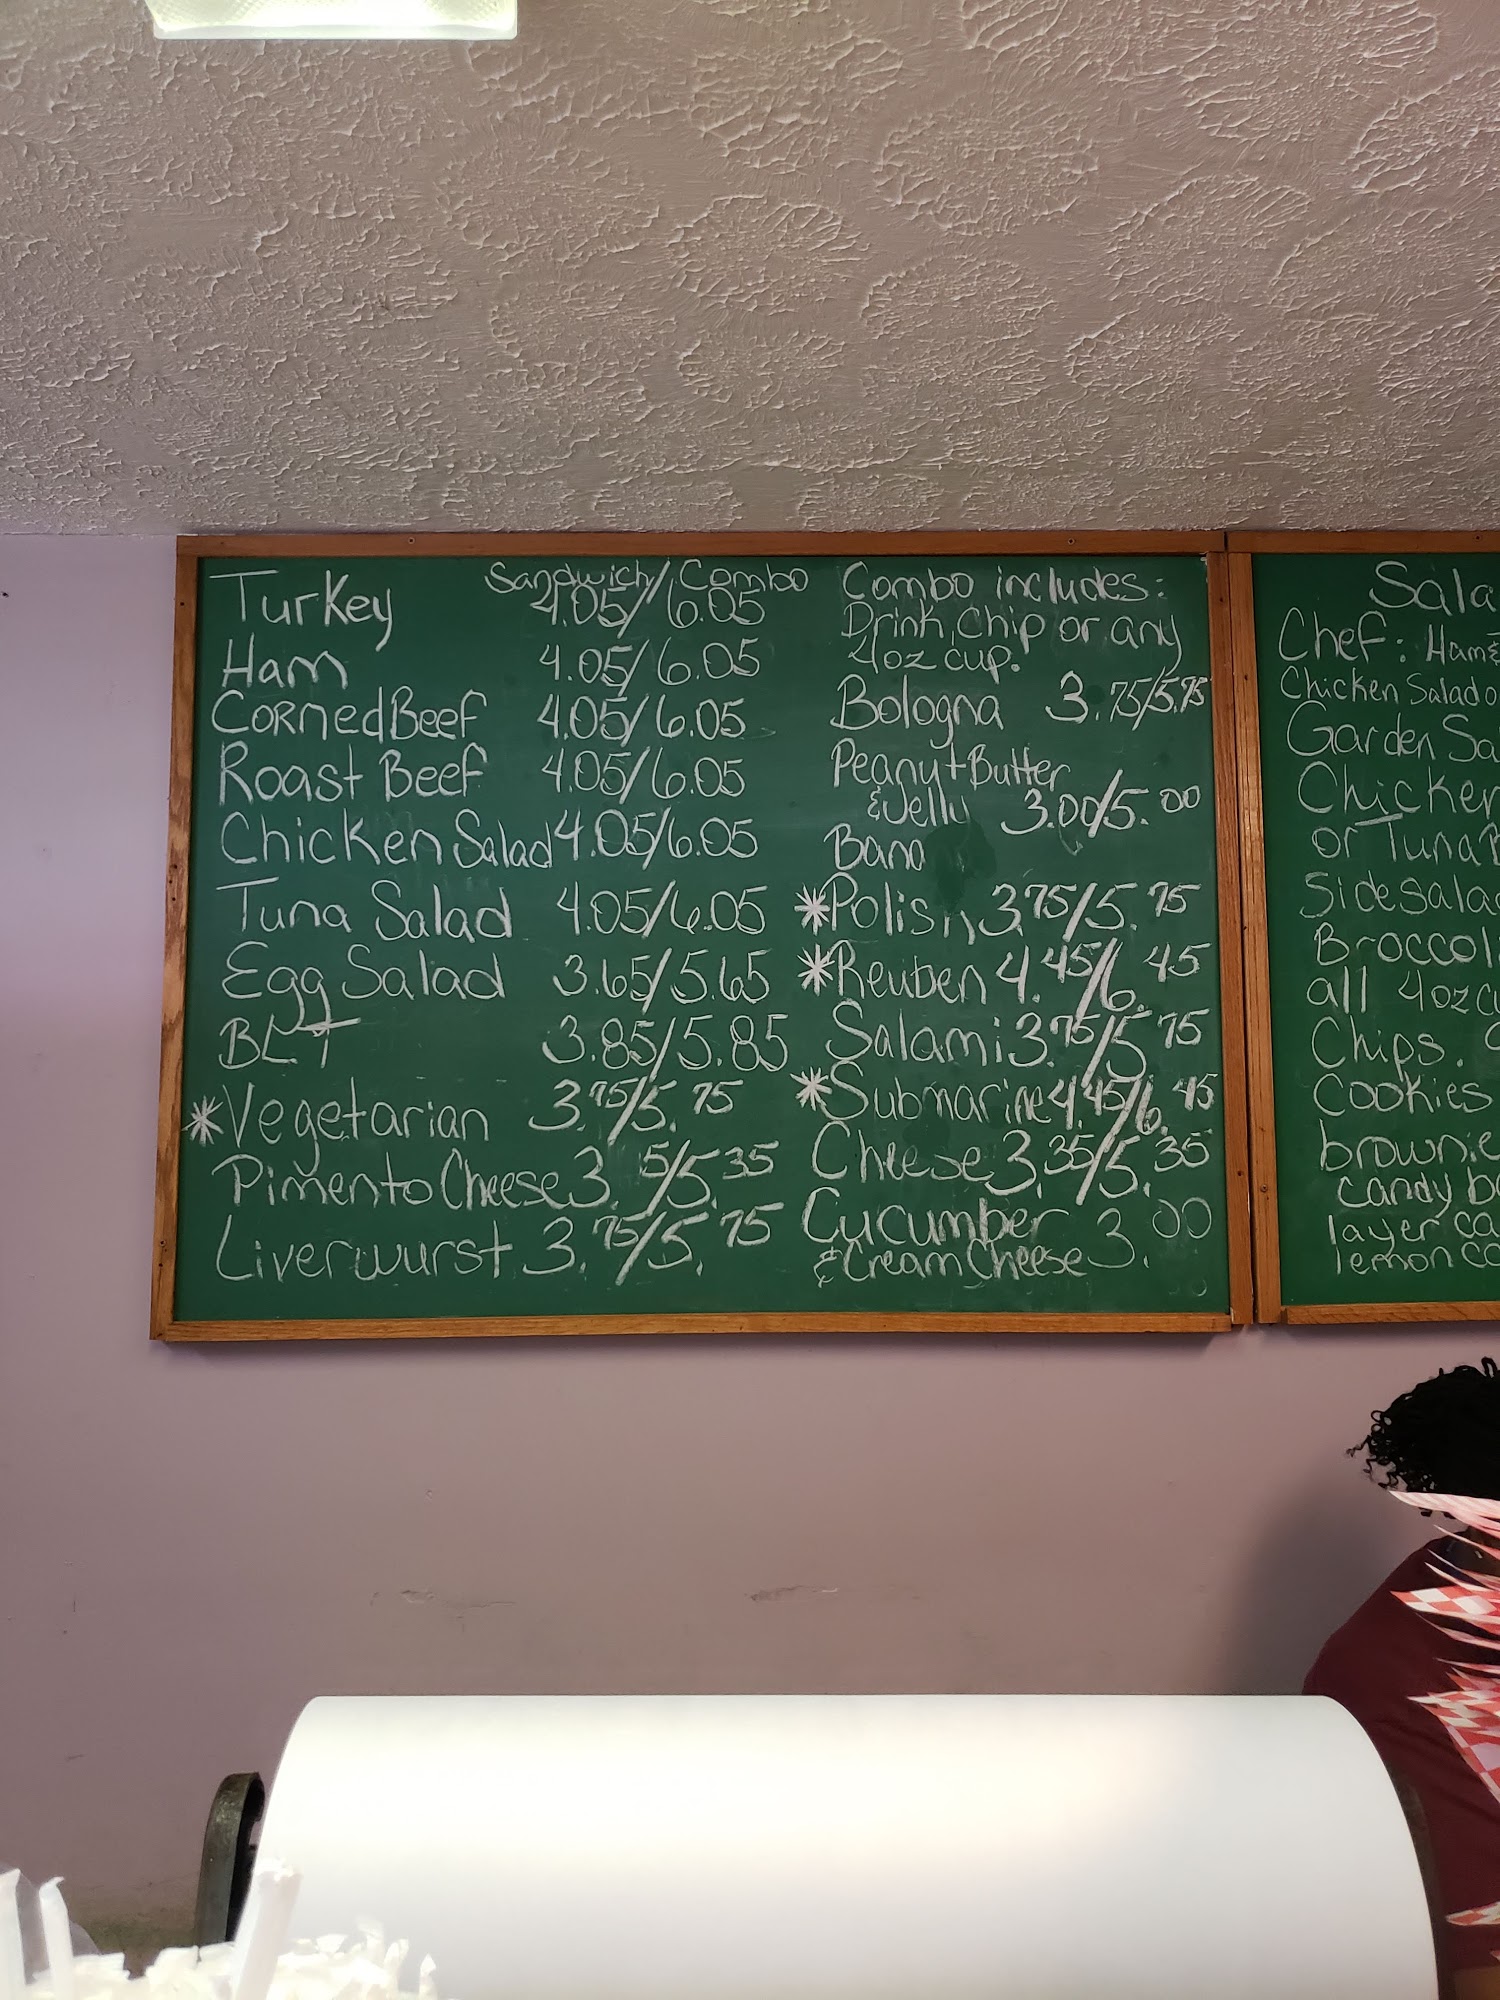 Sandwich/Combo
Turkey 4.05/6.05
Ham 4.05/6.05
Corned Beef 4.05/6.05
Roast Beef 4.05/6.05
Chicken Salad 4.05/6.05
Tuna Salad 4.05/6.05
Egg Salad 3.65/5.65
BLT 3.85/5.85
*Vegetarian 3.75/5.75
Pimento Cheese 3. 5/5.35
Liverwurst 3.75/5.75
Combo includes:
Drink, Chip or any
4oz cup.
Bologna 3.75/5.75
Peanut Butter
& Jelly 3.00/5.00
Bana
*Polish 3.75/5.75
*Reuben 4.45/6.45
Salami 3.75/5.75
*Submarine 4.45/6.45
Cheese 3.35/5.35
Cucumber
& Cream Cheese 3.00
Sala
Chef: Ham &
Chicken Salad o
Garden Sa
Chicken
or Tuna
Side salad
Broccoli
all 4oz cu
Chips.
Cookies
brownie
candy ba
layer ca
lemon co